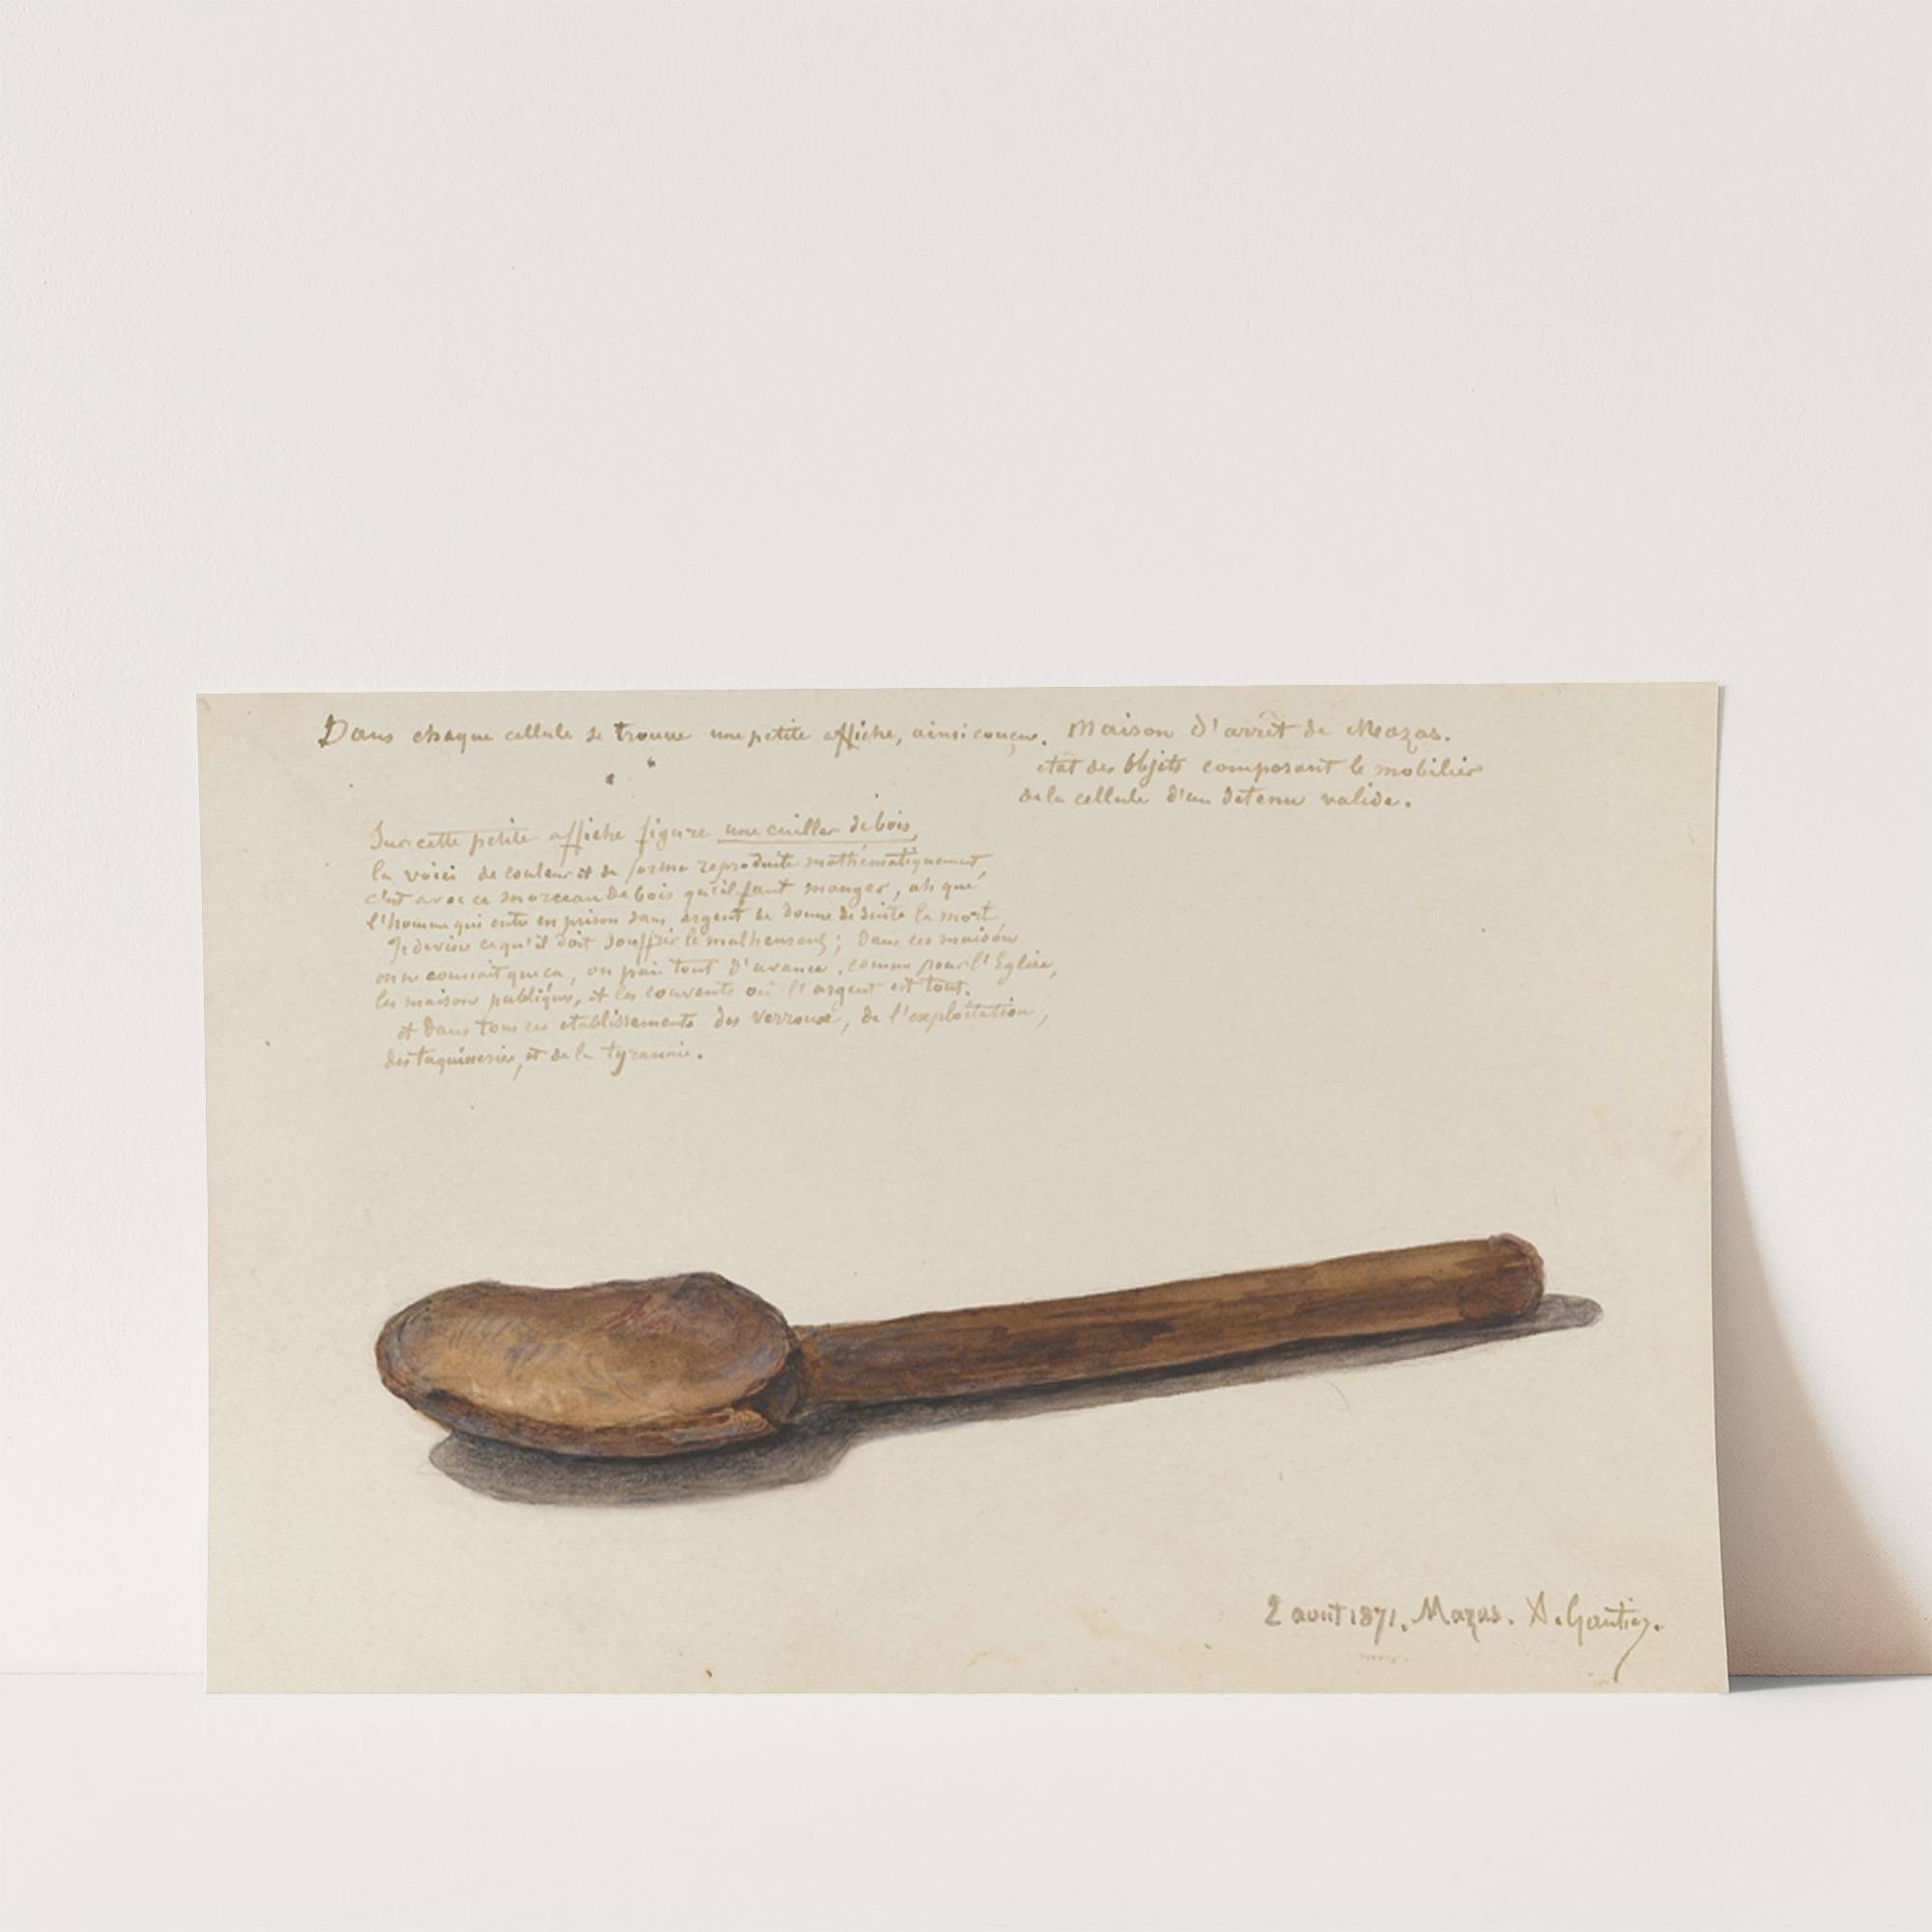 Dans chaque cellule se trouve une petite affiche, ainsi conçue. Maison d'arrêt de Mazas.
état des Objets composant le mobilier
de la cellule d'un detenu valide.
Sur cette petite affiche figure une cuiller de bois,
la voici de couleur et de forme reproduite mathématiquement,
c'est avec ce morceau de bois qu'il faut manger, ah que
l'homme qui entre en prison sans argent se donne de suite la mort
Je devine ce qu'il doit souffrir le malheureux; dans ces maisons
on ne connait que ca, on paie tout d'avance, comme pour l'Eglise,
les maisons publiques, et les couvents où l'argent est tout.
et dans tous ces etablissements des verroux, de l'exploitation,
des taquineries, et de la tyrannie.
2 août 1871. Mazas. A. Gautier.